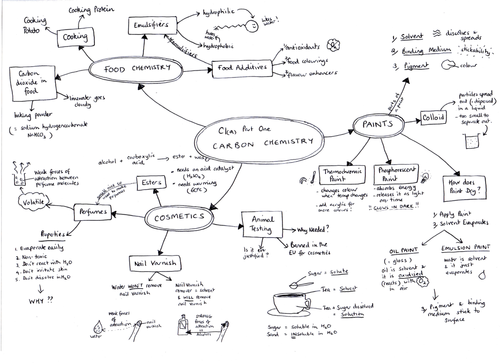 Cooking Protein
Cooking
Potato
Cooking
Emulsifiers
hydrophilic
hydrophobic
FOOD CHEMISTRY
Food Additives
antioxidants
food colourings
flavour enhancers
Carbon
dioxide in
food
limewater
goes
cloudy
baking powder
(= sodium hydrogencarbonate
NaHCO3)
C1(a) Part One
CARBON CHEMISTRY
PAINTS
1, Solvent
dissolves +
spreads
2, Binding Medium
3, Pigment
colour
Colloid
particles spread
out (dispersed)
in a liquid
too small to
separate out.
Thermochromic
Paint
- changes colour
when temp changes
- add acrylic for
more colours!
Phosphorescent
Paint
- absorbs energy
- releases it as light
over time
GLOWS IN DARK!!
How does
Paint Dry?
1, Apply Paint
2, Solvent Evaporates
OIL PAINT
(=gloss)
Oil is solvent so
it is oxidised
(reacts) with O2
in air
EMULSION PAINT
water is solvent
so it just
evaporates
3, Pigment + binding
medium stick to
surface
alcohol + carboxylic
acid → ester + water
- needs an acid catalyst
(H2SO4)
- needs warming
(60°C)
Esters
Weak forces of
attraction between
perfume molecules
Volatile
Perfumes
COSMETICS
Properties
1, Evaporate easily
2, Non-toxic
3, Don't react with H2O
4, Don't irritate skin
5, Don't dissolve in H2O
WHY ??
Animal
Testing
Why Needed?
Banned in the
EU for cosmetics
Is it
justified?
Nail Varnish
Water WON'T remove
nail varnish
Nail Varnish
remover = solvent
& WILL remove
nail varnish
weak forces of
attraction
water
nail varnish
attraction
nail varnish
Sugar = Solute
Tea = Solvent
Tea + Sugar dissolved
= Solution
Sugar = soluble in H2O
Sand = insoluble in H2O